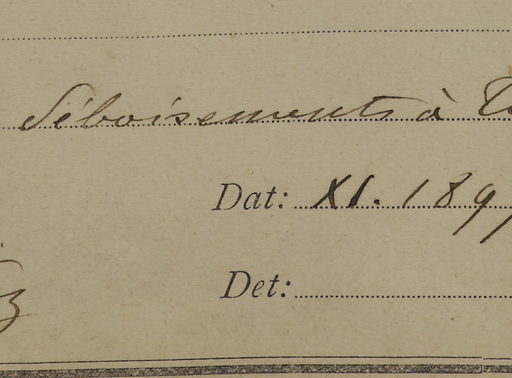 déboisements à
Dat: XI. 189
Det: